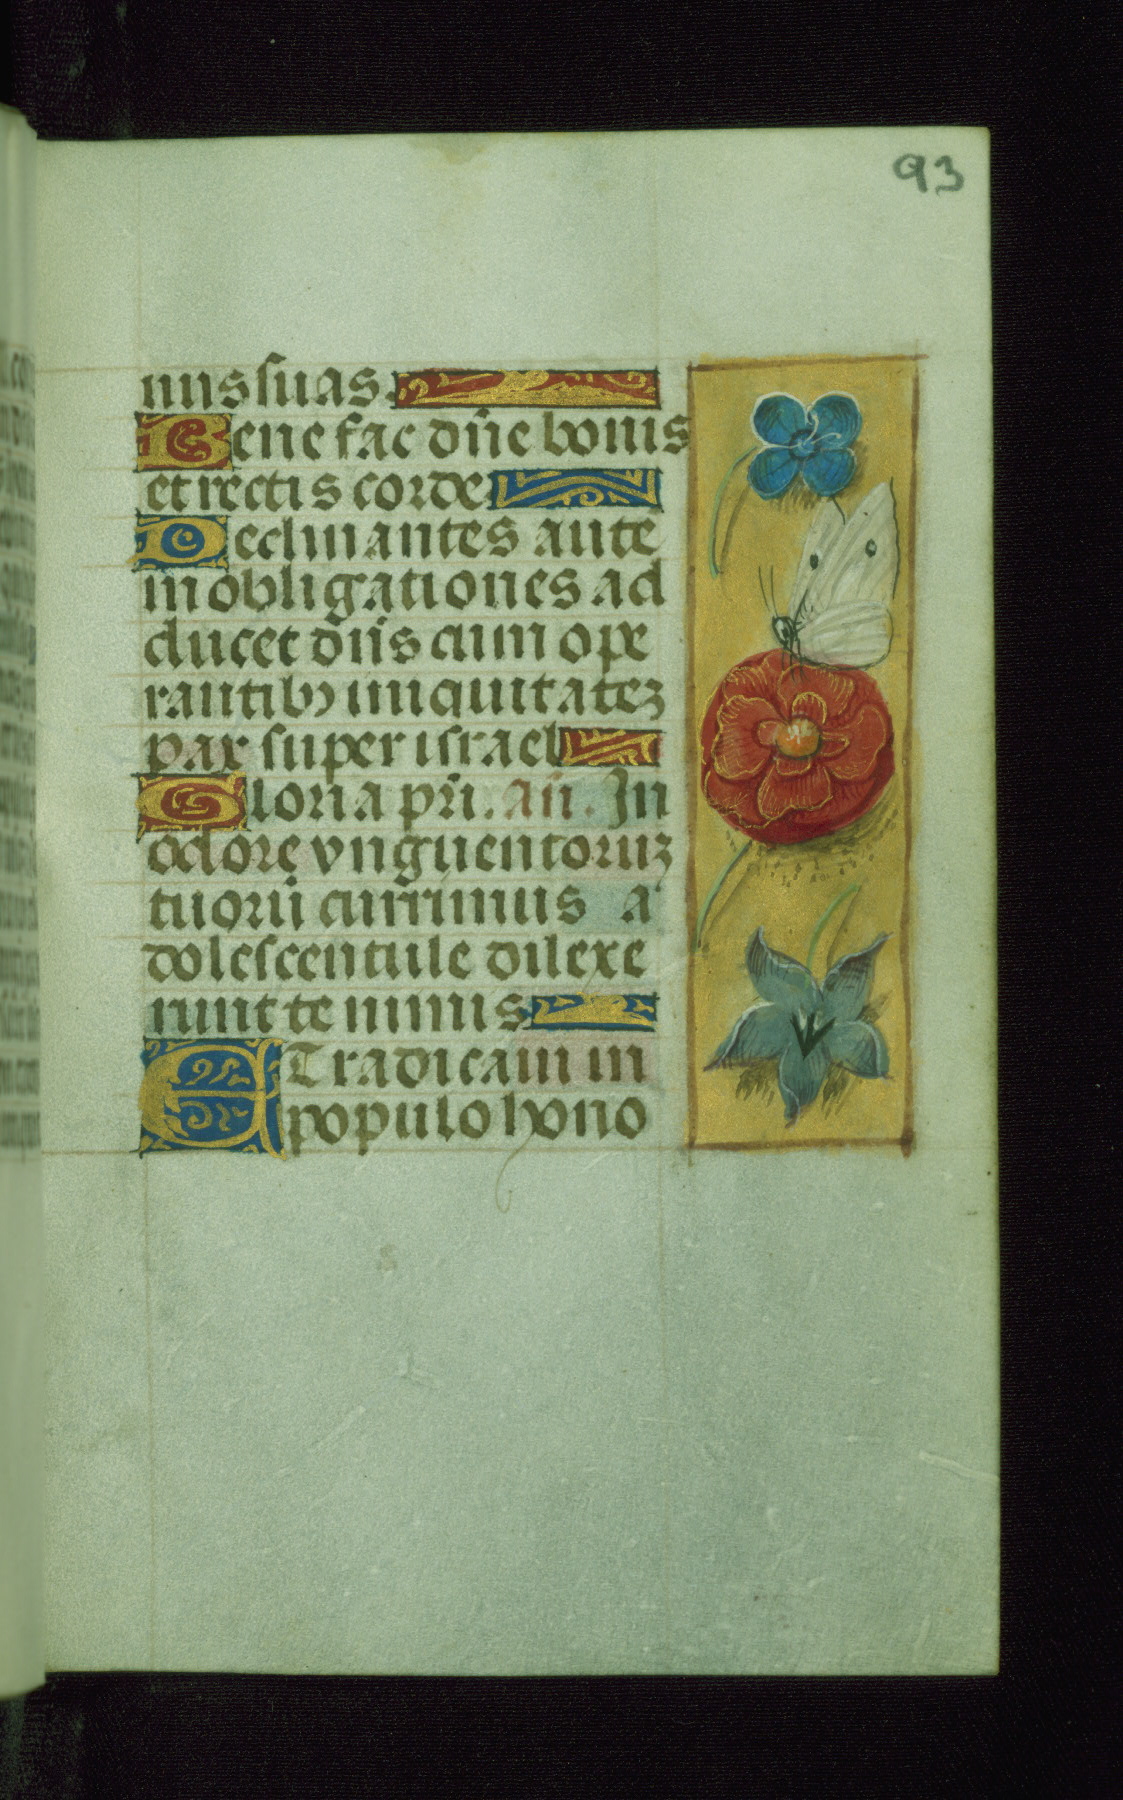 93
nus suas.
Bene fac dn̄e bonis
et rectis corde.
Declinantes aute
in obligationes ad
ducet dn̄s cum ope
rantibꝯ iniquitatēz
pax super israel
Gloria pr̄i. an̄. In
odore vnguentoruz
tuorū currimus a
dolescentule dilexe
runt te nimis.
ET radicaui in
populo hono